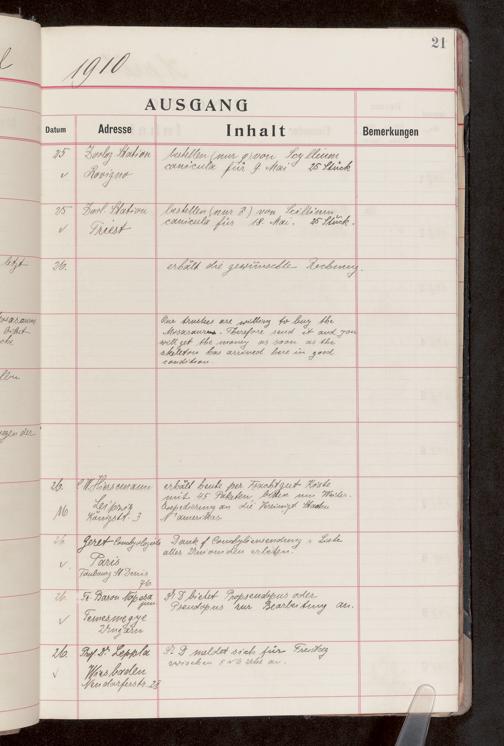 21
1910
AUSGANG
Datum Adresse Inhalt Bemerkungen
25 Zoolog Station bestellen (nur ♀) von Scyllium
Rovigno canicula für 9 Mai 25 Stück
25 Zool. Station bestellen (nur ♂) von Scillium
Triest canicula für 18 Mai. 25 Stück.
letzt
26. erhält die gewünschte Rechnung.
Our trustees are willing to buy the
Mosasaurus. Therefore send it and you
will get the money as soon as the
skeleton has arrived here in good
condition.
26. Hiersemann erhält heute per Frachtgut Kiste
Leipzig mit 45 Paketen bitten um Weiter-
Königstr. 3 expedierung an die Vereinigt Staaten
N amerikas
26 Geret Dank f Conchyliensendung u Liste
Paris aller
Faubourg St Denis
76
26. Fr. Baron Nopcsa Dr D bietet Propseudopus oder
Temesmegye Pseudopus zur Bearbeitung an.
Ungarn
26. Prof Dr. Leppla Dr D meldet sich für Freitag
Wiesbaden zwischen 5 u 6 Uhr an.
Neudorferstr.